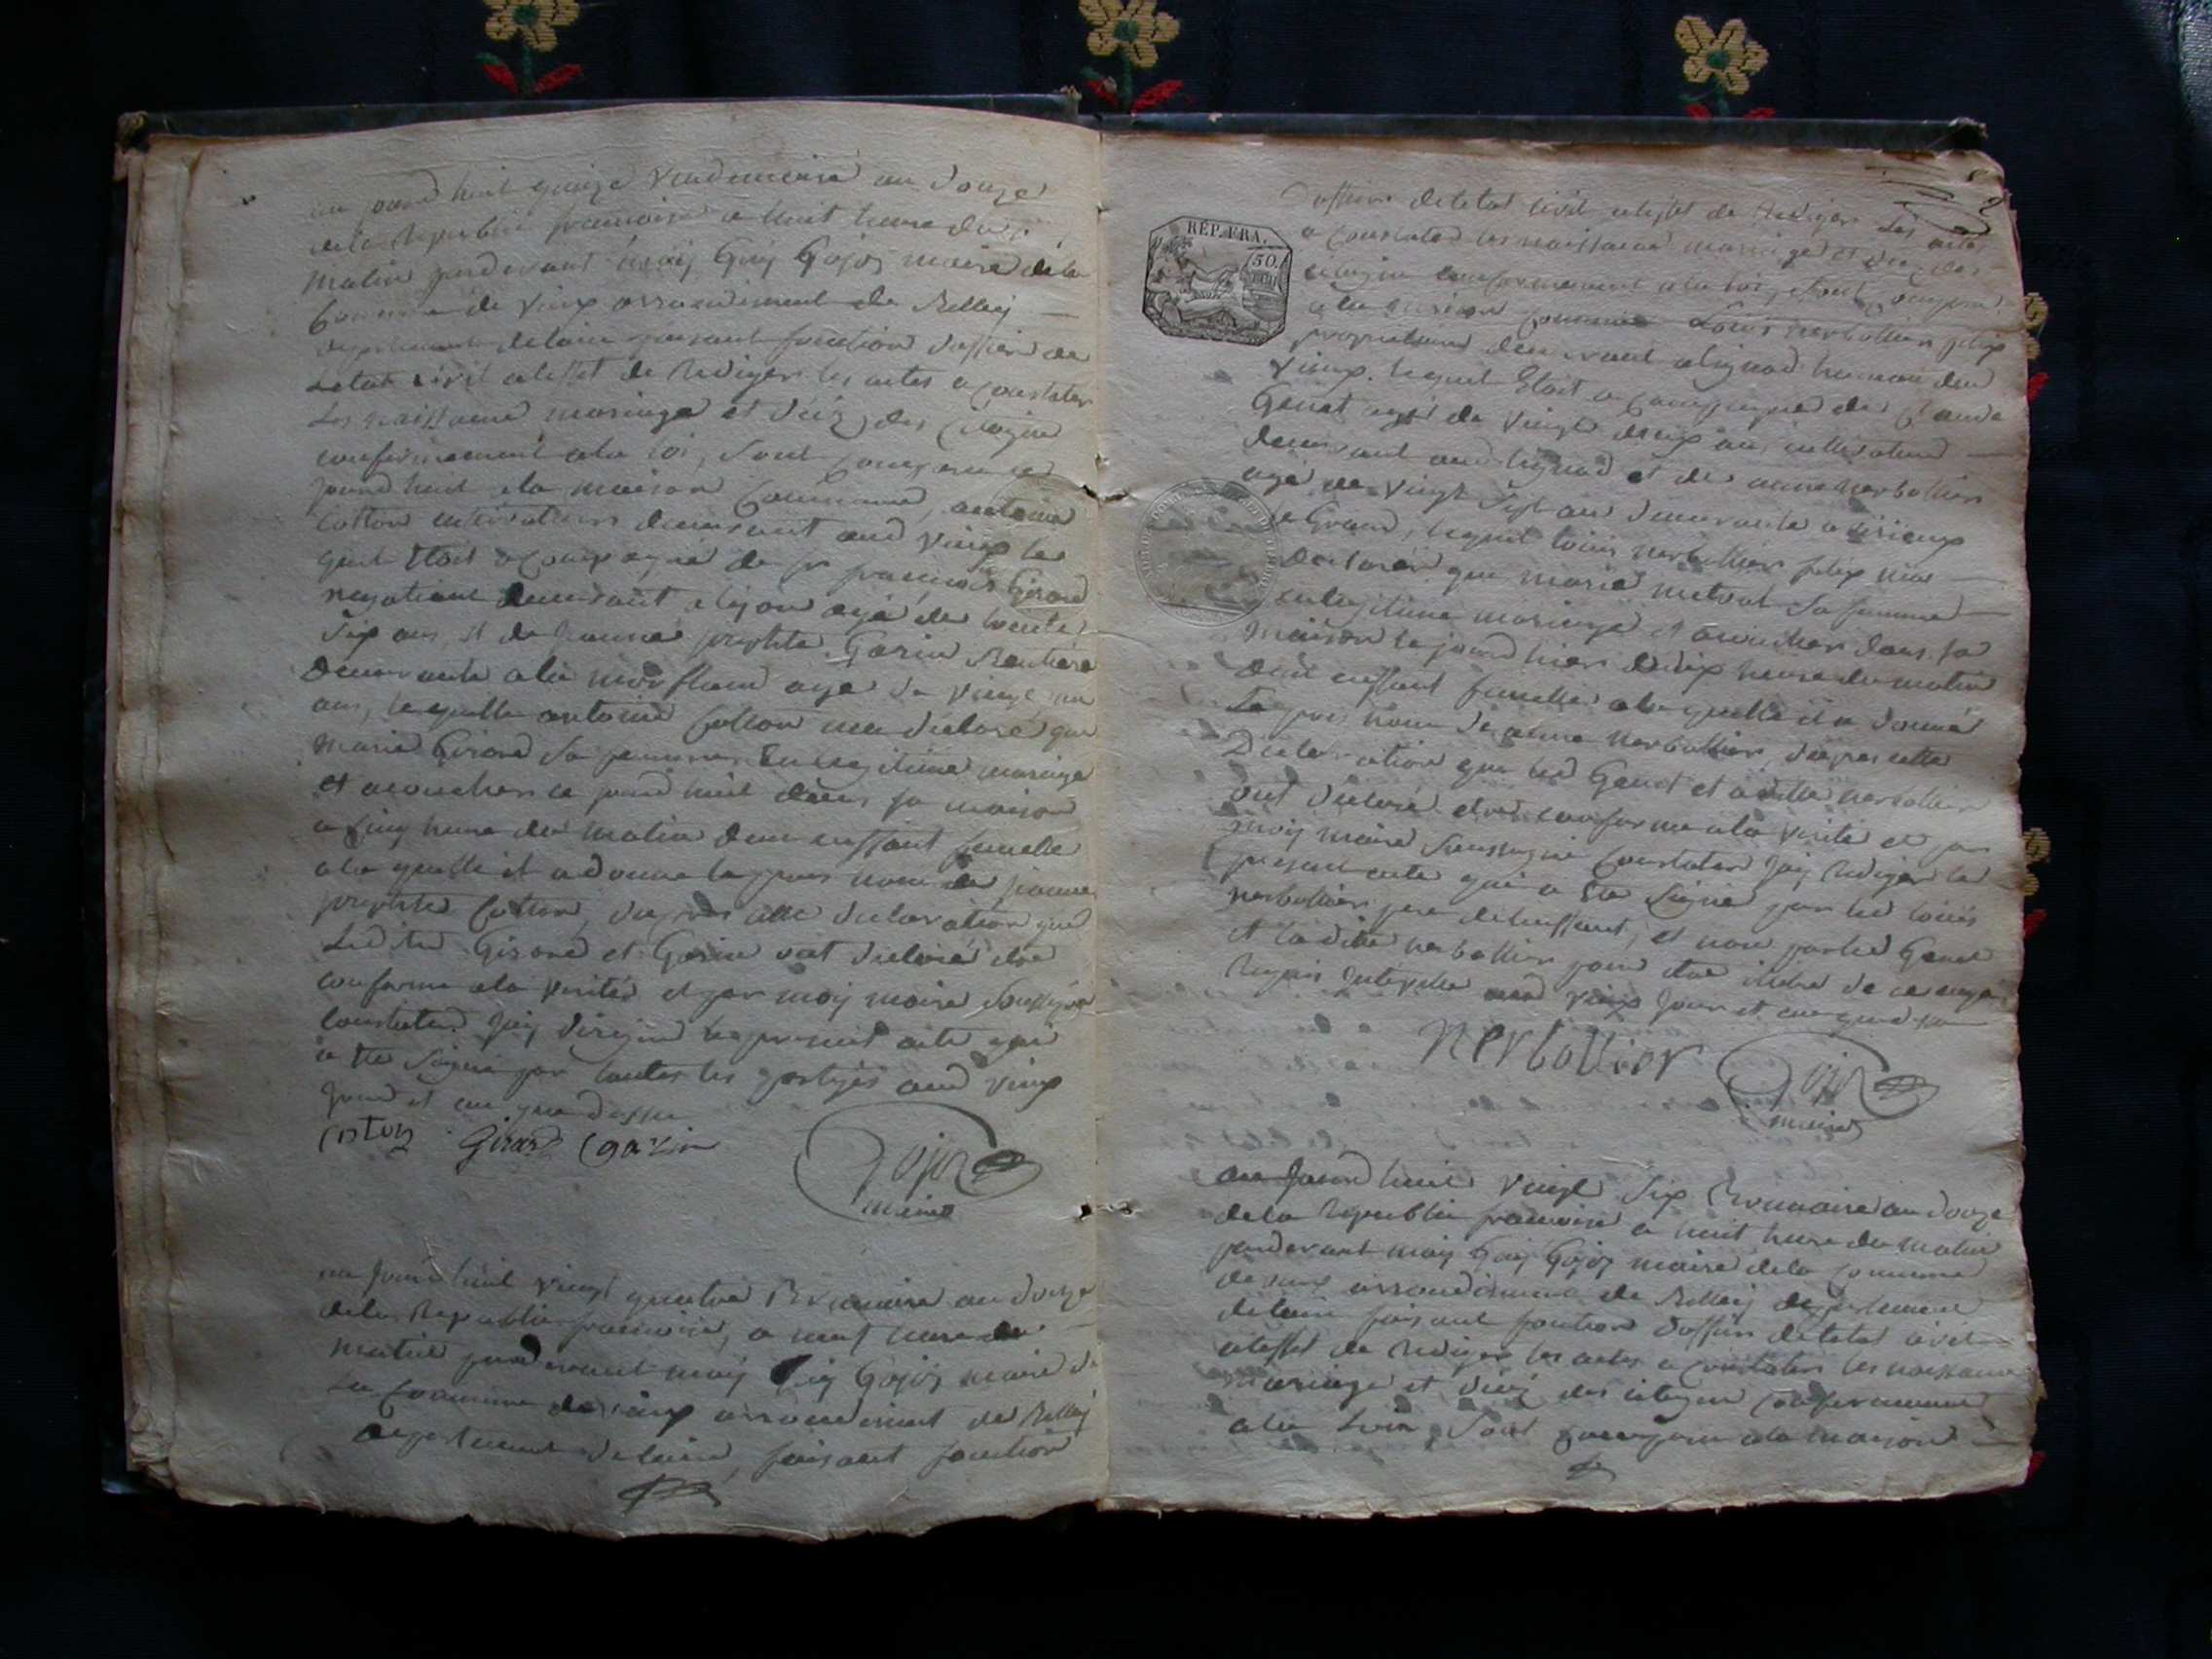 au jourd huit quinze vendemiaire an douze
de la Republiq francoise a huit heure du
matin pardevant moij Guij Gojoz maire de la
Commune de vieux arrondiment de Belleij
departement de lain faisant fonction dofficier de
Letat civil a leffet de Rediger les actes a Constater
Les naissance mariage et déciz des citoyin
conformement a la loi, sont comparu ce
jourd huit a la maison Commune, antoine
Cotton cultivateur demeurant aud vieux le
quel Etoit acompagné de francois Girard
negotiant demeurant a lyon agé de trente
six ans, et de jeanne josephte Garin Rentiere
demeurante a la agé de vingt un
ans, le quelle antoine Cotton ma declaré que
marie Girard sa femme En legitime mariage
et acoucher ce jourd huit dans sa maison
a cinq heure du matin dun enffant femelle
a la quelle il a donné le pres nom de jeanne
josephte Cotton, dapres cette declaration que
Lesdites Girard et Garin ont declaré etre
conforme a la verité et par moij maire Soussigné
Constater jaij dirigere le present acte qui
a Ete Signé par toutes les partyes aud vieux
jour et an que dessu
Cotton Girard Garin
Gojoz
maire
au jourd huit vingt quatre Brumaire an douze
de la Republiq francoise, a neuf heure du
matin pardevant moij Guij Gojoz maire de
La Commune de vieux arrondiment de Belleij
departement de lain, faisant fonction
RÉP. FRA.
50.
dofficier de letat civil a leffet de Rediger Les actes
a Constater les naissance mariage et deciz des
citoyin conformement a la loi, sont comparu
a la maison commune Louis nerbollier felix
proprietaire demeurant a lignod hameau du
vieux. lequel Etoit acompagné de Claude
Genet agé de vingt deux an, cultivateur
demeurant aud lignod et de anne nerbollier
agé de vingt sept an demeurante a vieux
le Grand, lequel louis nerbollier felix ma
declarer que marie sa femme
en legitime mariage et acoucher dans sa
maison le jourd hier a dix heure du matin
dun enffant femelle a la quelle il a donné
Le pres nom de anne nerbollier, dapres cette
Declaration que led Genet et a dite nerbollier
ont declaré etre conforme a la verité et par
moij maire Soussigné Constater jaij Rediger le
present acte qui a Ete Signé par led louis
nerbollier pere de lenffant, et non par led Genet
et la dite nerbollier pour etre illitre de ce enquis
Requis jnterpelle aud vieux jour et an que dessu
nerbollier Gojoz
maire
au jourd huit vingt six Brumaire an douze
de la Republiq francoise a huit heure du matin
pardevant moij Guij Gojoz maire de la Commune
de vieux arrondiment de Belleij departement
de lain faisant fonction dofficier de letat civil
a leffet de Rediger les actes a Constater les naissance
mariage et déciz des citoyin Conformement
a la Loix, Sont comparu a la maison